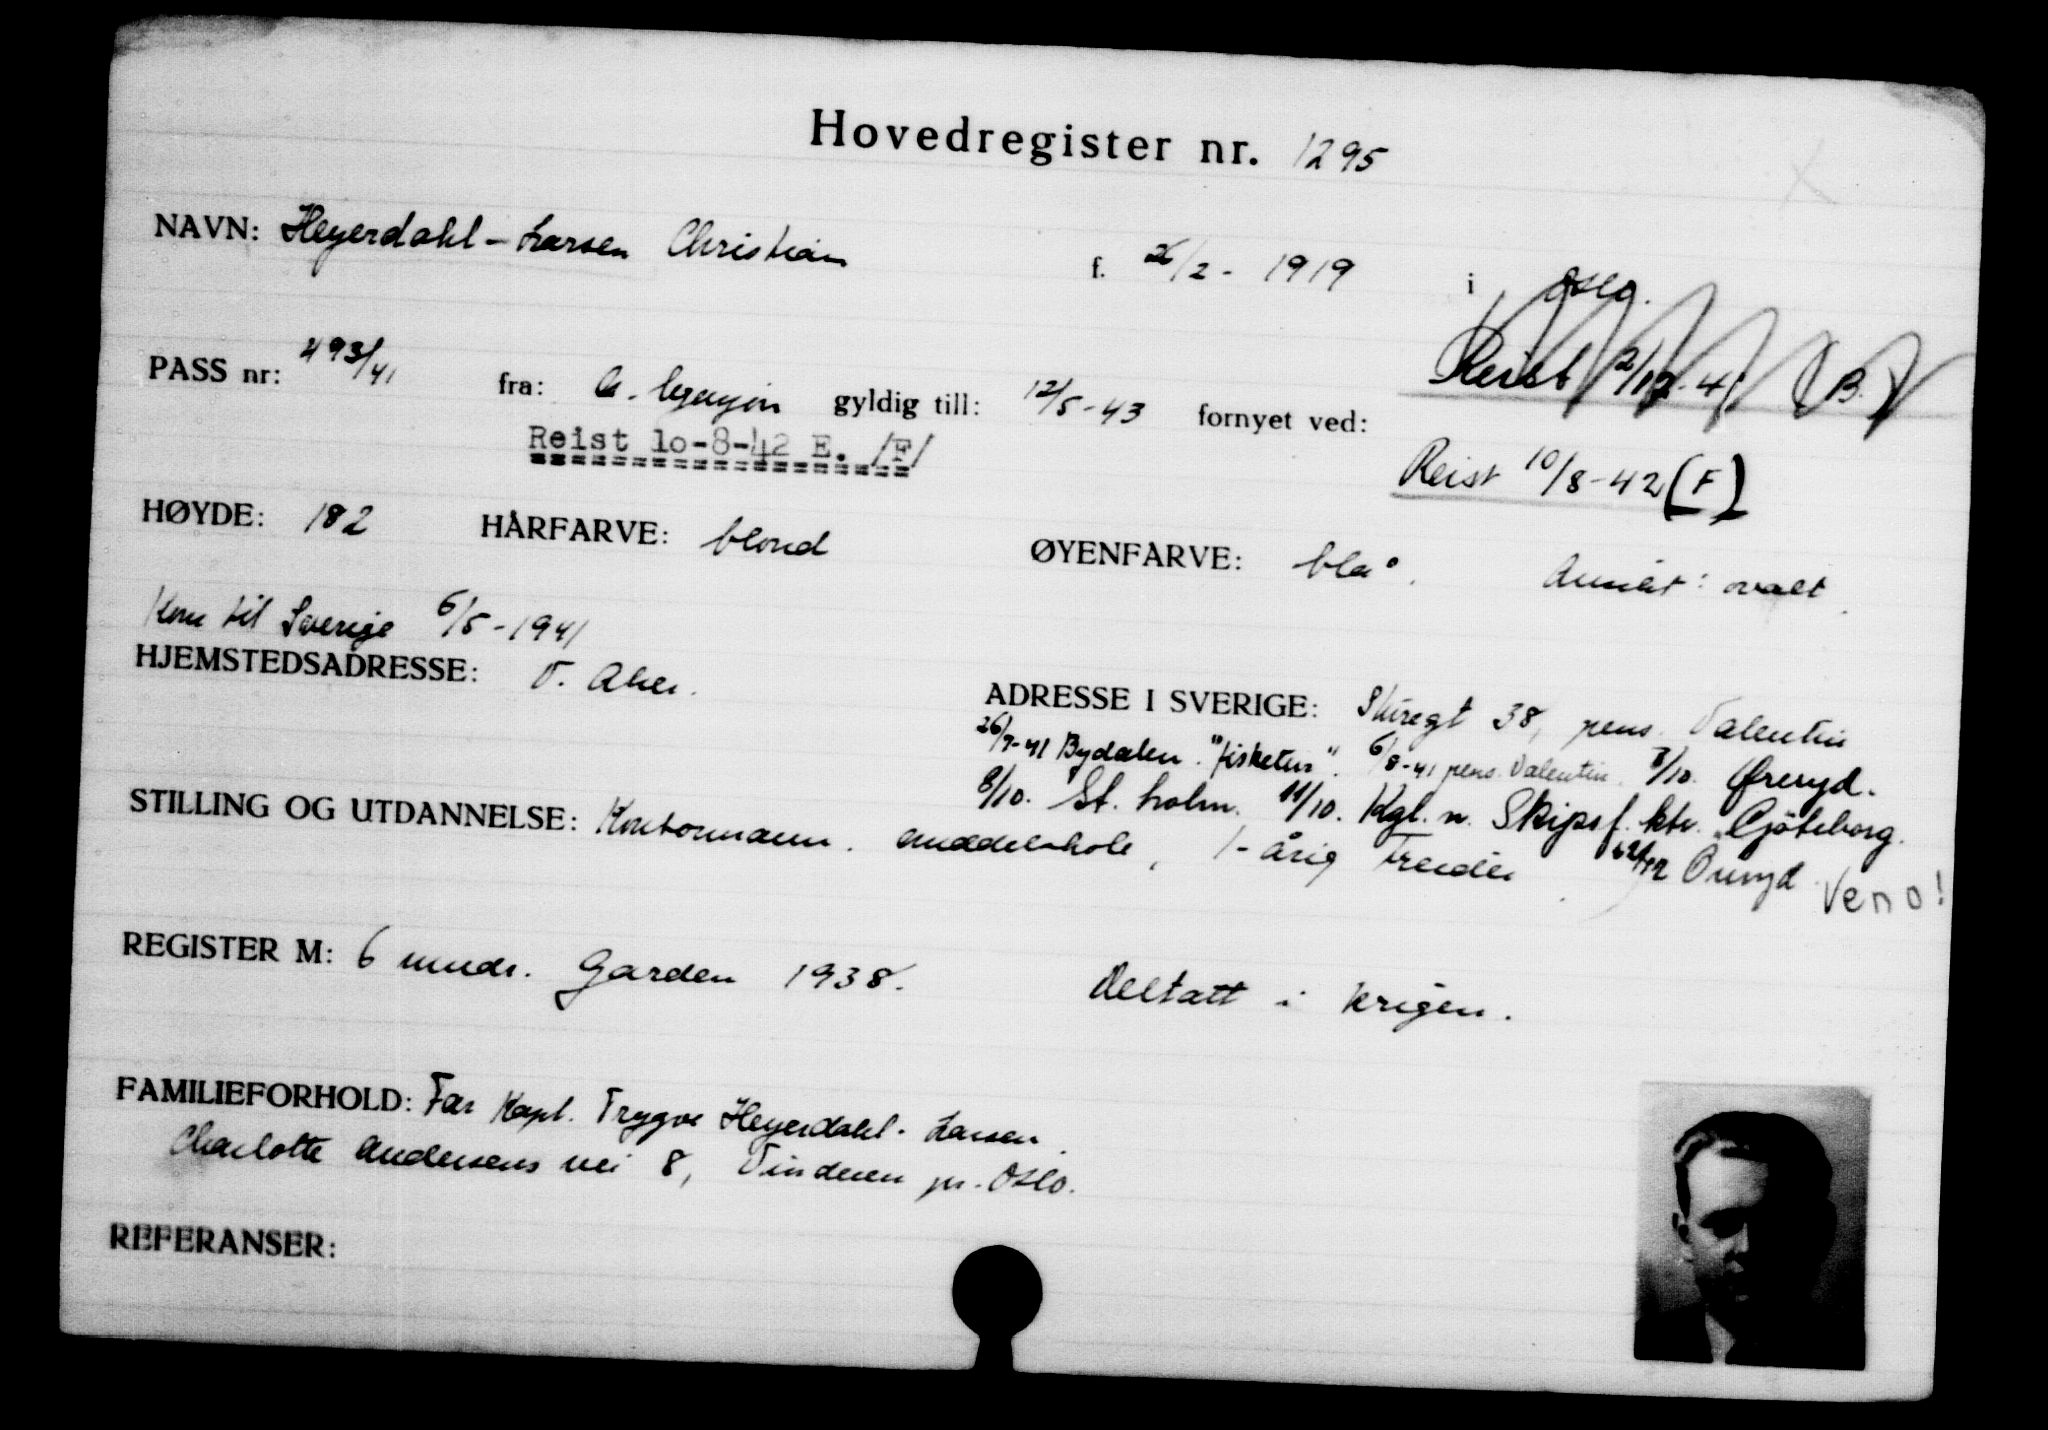 Hovedregister nr. 1295
NAVN: Heyerdahl-Larsen Christian f. 26/2 - 1919 i Oslo.
Reist 2/12-41 (B.)
PASS nr: 493/41 fra: gyldig till: 12/5-43 fornyet ved:
Reist 10-8-42 E. /F/
Reist 10/8-42 (F)
HØYDE: 182 HÅRFARVE: blond ØYENFARVE: blå. Ansikt: ovalt.
Kom til Sverige 6/5-1941
HJEMSTEDSADRESSE: V. Aker.
ADRESSE I SVERIGE: 38, pens. Valentin
26/7-41 Bydalen. "fisketur". 6/8-41 pens. Valentin. 3/10. Øreryd.
8/10. St. holm. 11/10. Kgl. n. Skipsf. ktr. Gøteborg.
Öreryd. Veno!
STILLING OG UTDANNELSE: Kontormann. middelskole, 1-årig Treider
REGISTER M: 6 mndr. Garden 1938. Deltatt i krigen.
FAMILIEFORHOLD: Far Kapt. Trygve Heyerdahl-Larsen.
Charlotte Andersens vei 8, Vinderen pr. Oslo.
REFERANSER: